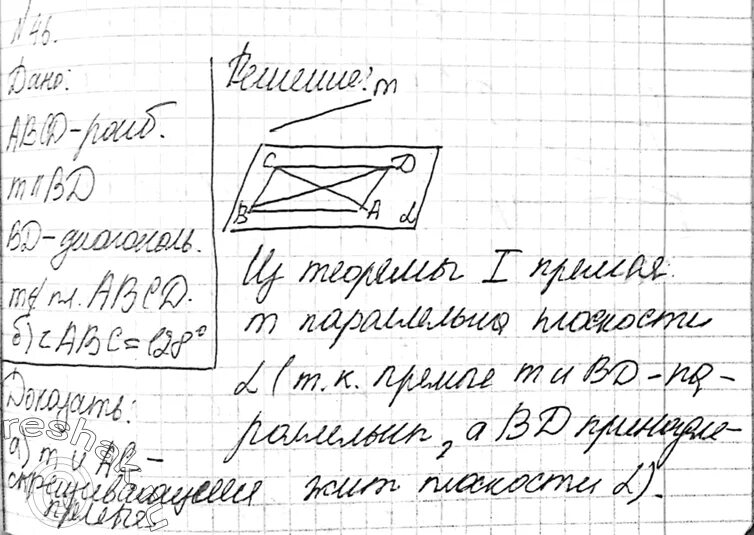 №46.
Дано:
ABCD-ромб.
m॥BD
BD-диагональ.
m⊄ пл. ABCD.
б) ∠ABC=128°
Доказать:
а) m и AC -
скрещивающиеся
прямые
Решение:
m
C D
B A α
Из теоремы I прямая
m параллельна плоскости
α (т.к. прямые m и BD-па-
раллельны, а BD принадле-
жит плоскости α).